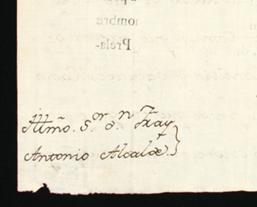 nombre
Prela-
Illmõ. S.ᵒʳ D.ⁿ Fray
Antonio Alcalde.